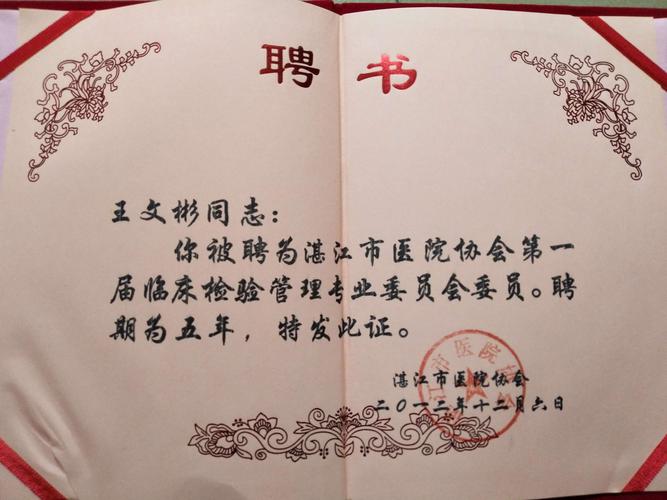 聘书
王文彬同志：
你被聘为湛江市医院协会第一
届临床检验管理专业委员会委员。聘
期为五年，特发此证。
湛江市医院协会
二〇一二年十二月六日
江市医院协会